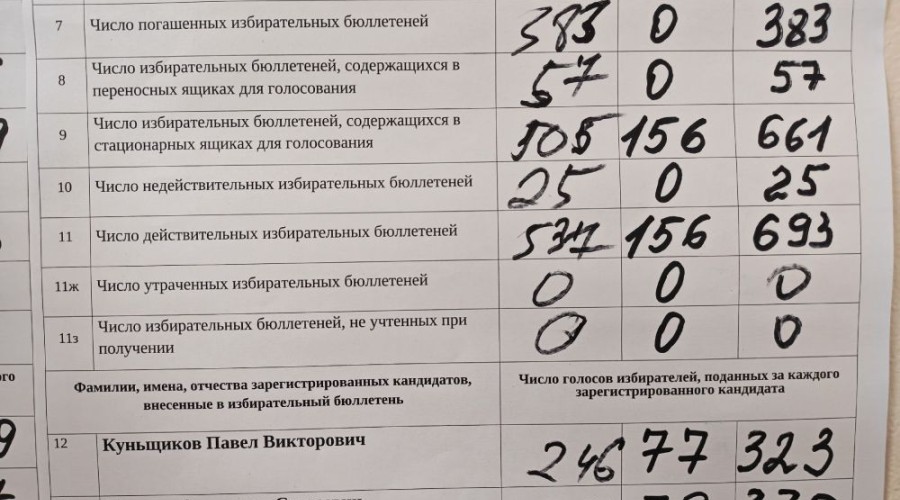 7 Число погашенных избирательных бюллетеней 383 0 383
8 Число избирательных бюллетеней, содержащихся в
переносных ящиках для голосования 57 0 57
9 Число избирательных бюллетеней, содержащихся в
стационарных ящиках для голосования 505 156 661
10 Число недействительных избирательных бюллетеней 25 0 25
11 Число действительных избирательных бюллетеней 537 156 693
11ж Число утраченных избирательных бюллетеней 0 0 0
11з Число избирательных бюллетеней, не учтенных при
получении 0 0 0
Фамилии, имена, отчества зарегистрированных кандидатов,
внесенные в избирательный бюллетень
Число голосов избирателей, поданных за каждого
зарегистрированного кандидата
12 Куньщиков Павел Викторович 246 77 323